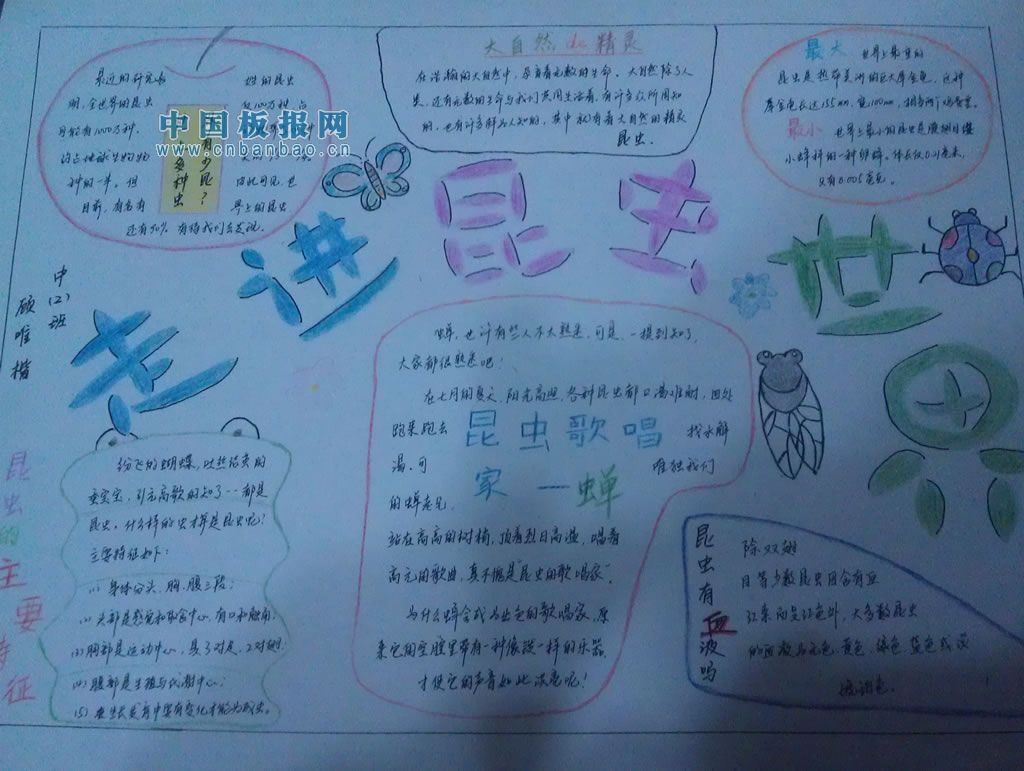 大自然de精灵
在浩瀚的大自然中，孕育着无数的生命。大自然除了人
类，还有无数的生命与我们共同生活着，有许多众所周知
的，也有许多鲜为人知的，其中就有着大自然的精灵
昆虫。
最近的研究表
明，全世界的昆虫
可能有1000万种，
约占地球生物物
种的一半。但
目前，有名有
姓的昆虫
仅100万种，占
由此可见，世
界上的昆虫
还有90%有待我们去发现。
有多少昆
多种虫？
中国板报网
www.cnbanbao.cn
最大 世界上最重的
昆虫是热带美洲的巨大犀金龟，这种
犀金龟长达155mm，宽100mm，相当两个鸡蛋重。
最小 世界上最小的昆虫是膜翅目缨
小蜂科的一种卵蜂，体长仅0.21毫米，
只有0.005毫克。
走进昆虫世
中(2)班
顾唯楷
昆虫的主要特征
纷飞的蝴蝶，吐丝结茧的
蚕宝宝，引亢高歌的知了……都是
昆虫，什么样的虫才算是昆虫呢？
主要特征如下：
(1) 身体分头、胸、腹三段；
(2) 头部是感觉和取食中心，有口和触角；
(3) 胸部是运动中心，具3对足，2对翅；
(4) 腹部是生殖与代谢中心；
(5) 在生长发育中要有变化才能为成虫。
蝉，也许有些人不太熟悉，可是，一提到知了，
大家都很熟悉吧！
在七月的夏天，阳光高照，各种昆虫都口渴难耐，四处
跑来跑去 找水解
渴，可 唯独我们
的蝉老兄，
昆虫歌唱
家 — 蝉
站在高高的树梢，顶着烈日高温，唱着
高亢的歌曲，真不愧是“昆虫的歌唱家”。
为什么蝉会成为出色的歌唱家，原
来它的空腔里带有一种像鼓一样的乐器，
才使它的声音如此洪亮呢！
昆虫有血液吗
除双翅
目等少数昆虫因含有血
红素而呈红色外，大多数昆虫
的血液为无色、黄色、绿色、蓝色或淡
琥珀色。